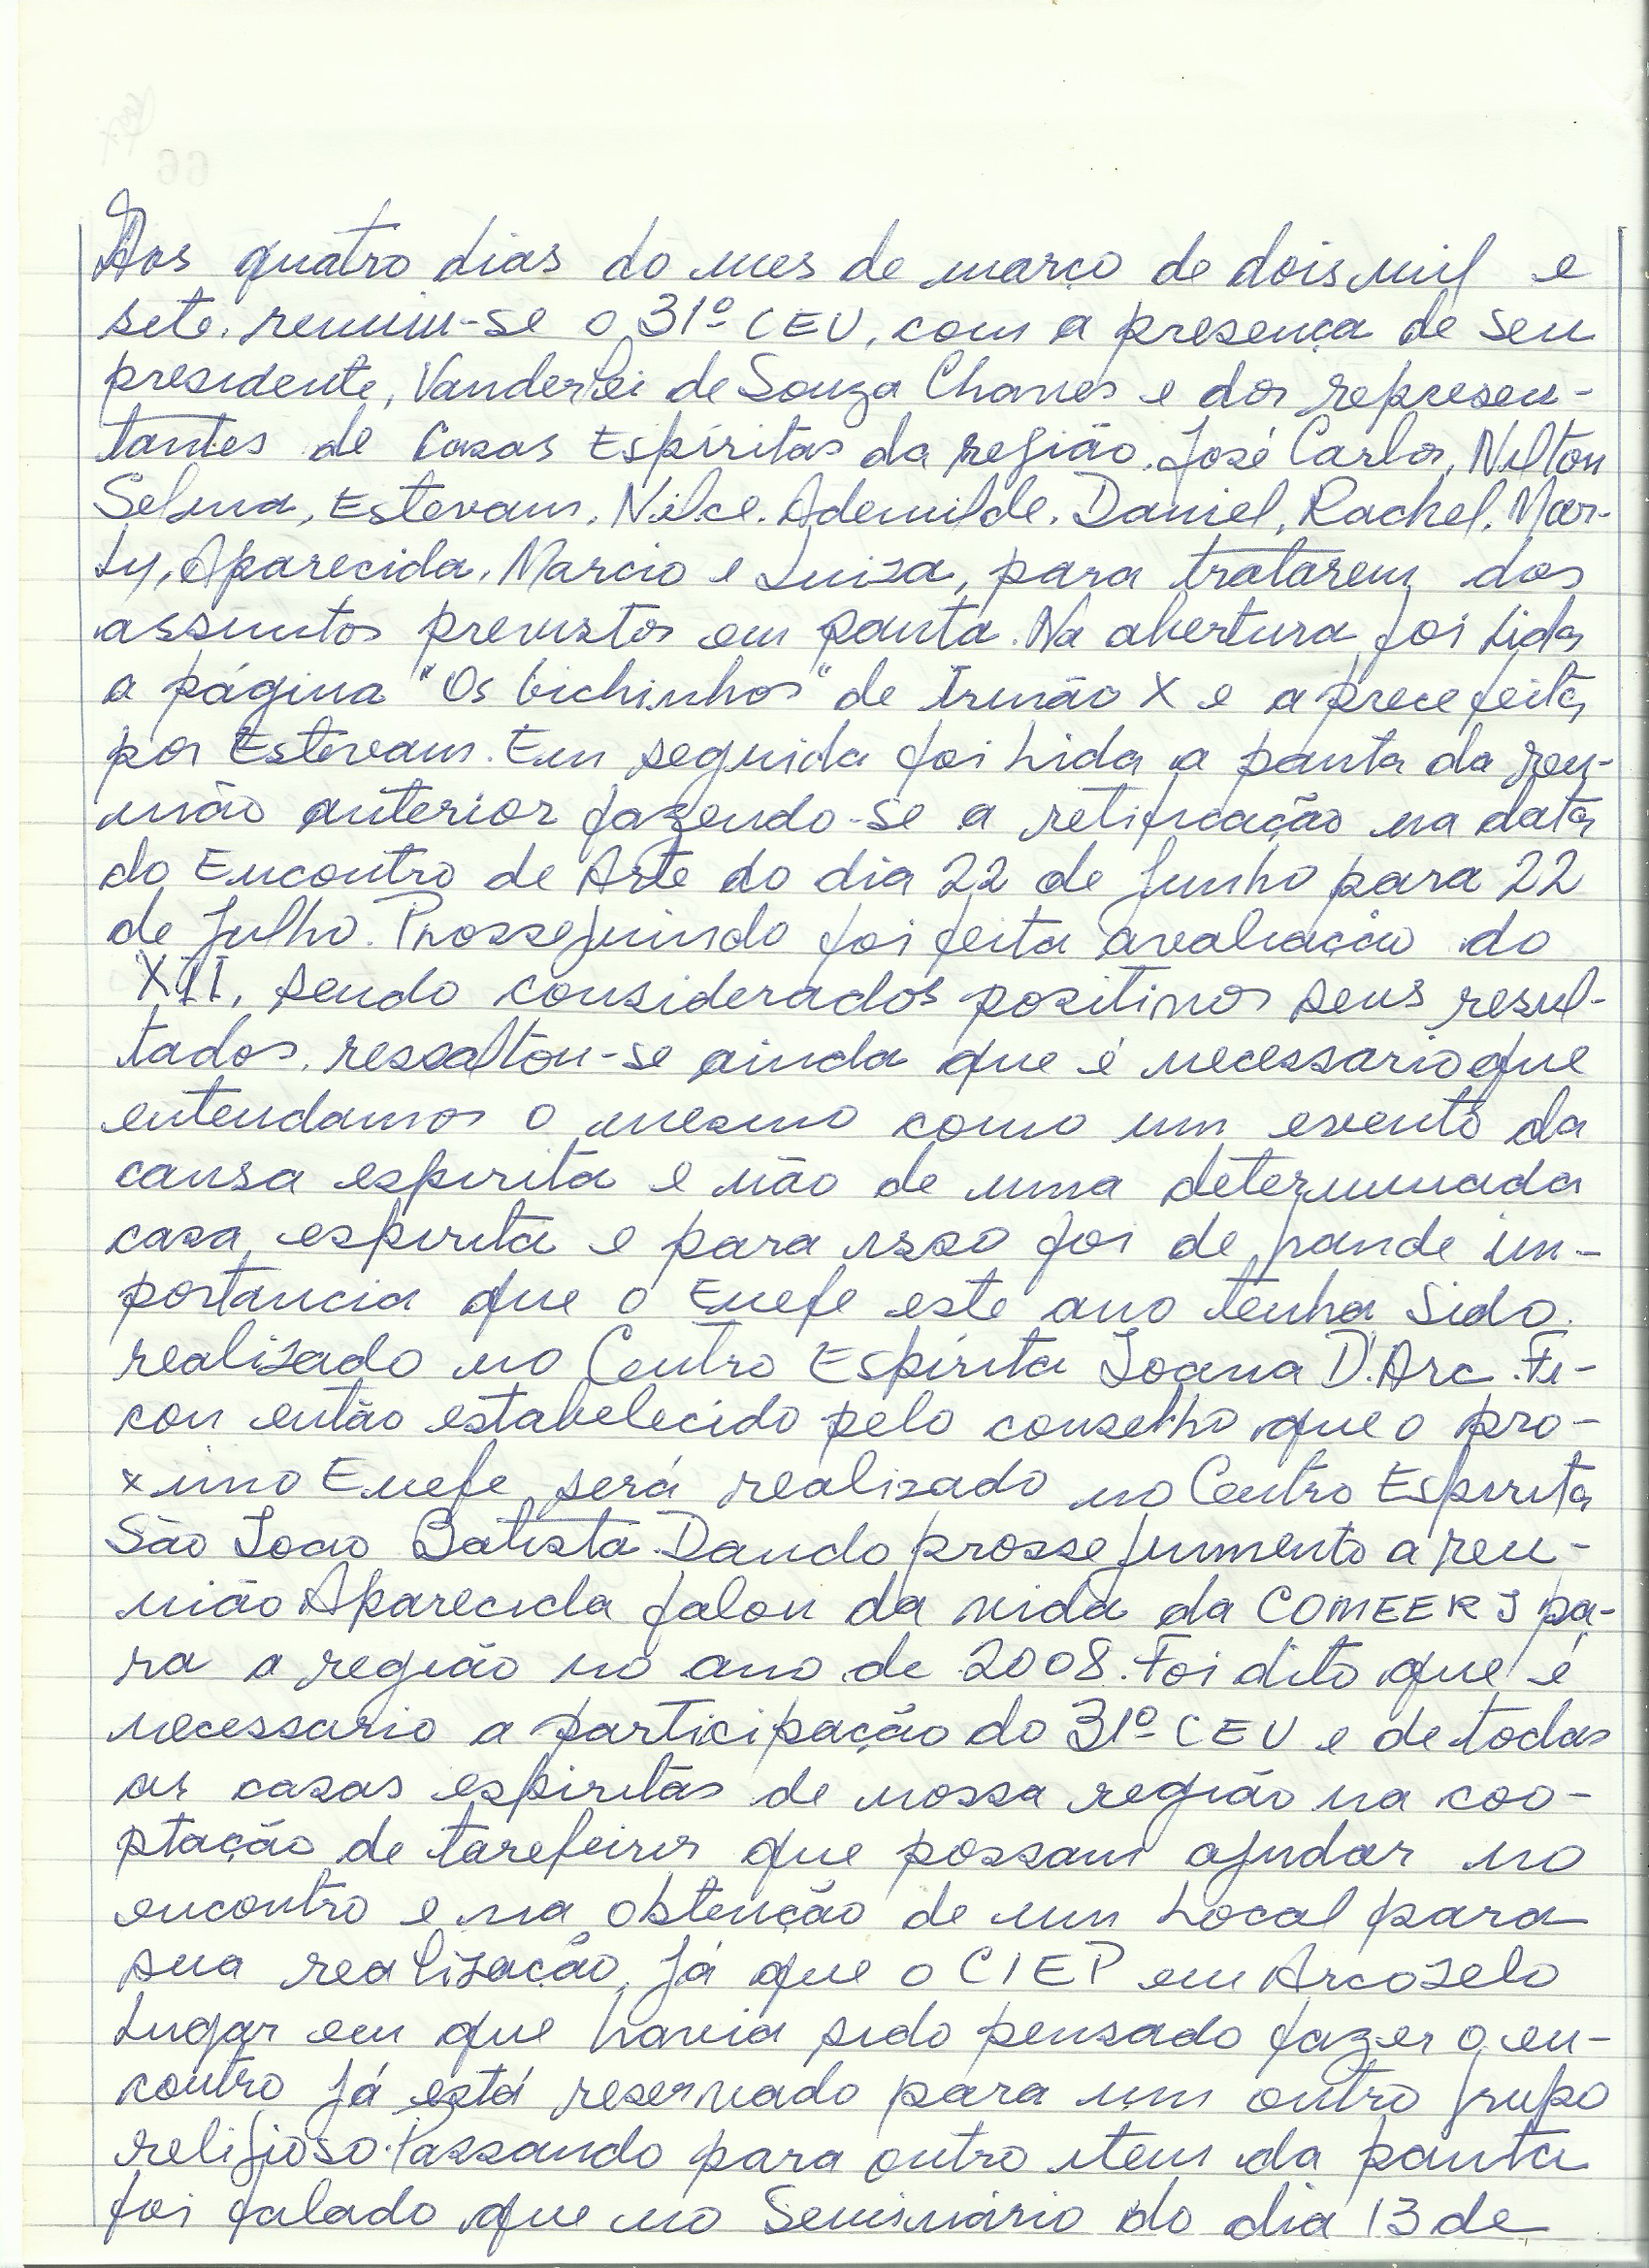 Aos quatro dias do mes de março de dois mil e
sete, reuniu-se o 31º CEU, com a presença de seu
presidente, Vanderlei de Souza Chaves e dos represen-
tantes de Casas Espíritas da região. José Carlos, Nilton
Selma, Estevam, Nilce, Ademilde, Daniel, Rachel, Mar-
ly, Aparecida, Marcio e Luiza, para tratarem dos
assuntos previstos em pauta. Na abertura foi lida
a página "Os bichinhos" de Irmão X e a prece feita
por Estevam. Em seguida foi lida a pauta da reu-
nião anterior fazendo-se a retificação na data
do Encontro de Arte do dia 22 de Junho para 22
de Julho. Prosseguindo foi feita avaliação do
XII, sendo considerados positivos seus resul-
tados, ressaltou-se ainda que é necessario que
entendamos o mesmo como um evento da
causa espirita e não de uma determinada
casa espirita e para isso foi de grande im-
portancia que o Enefe este ano tenha sido
realizado no Centro Espírita Joana D'Arc. Fi-
cou então estabelecido pelo conselho que o pro-
ximo Enefe será realizado no Centro Espirita
São Joao Batista. Dando prosseguimento a reu-
nião Aparecida falou da vida da COMEERJ pa-
ra a região no ano de 2008. Foi dito que é
necessario a participação do 31º CEU e de todas
as casas espiritas de nossa região na coo-
ptação de tarefeiros que possam ajudar no
encontro e na obtenção de um local para
sua realização, já que o CIEP em Arcozelo
lugar em que havia sido pensado fazer o en-
contro já está reservado para um outro grupo
religioso. Passando para outro item da pauta
foi falado que no Seminário do dia 13 de